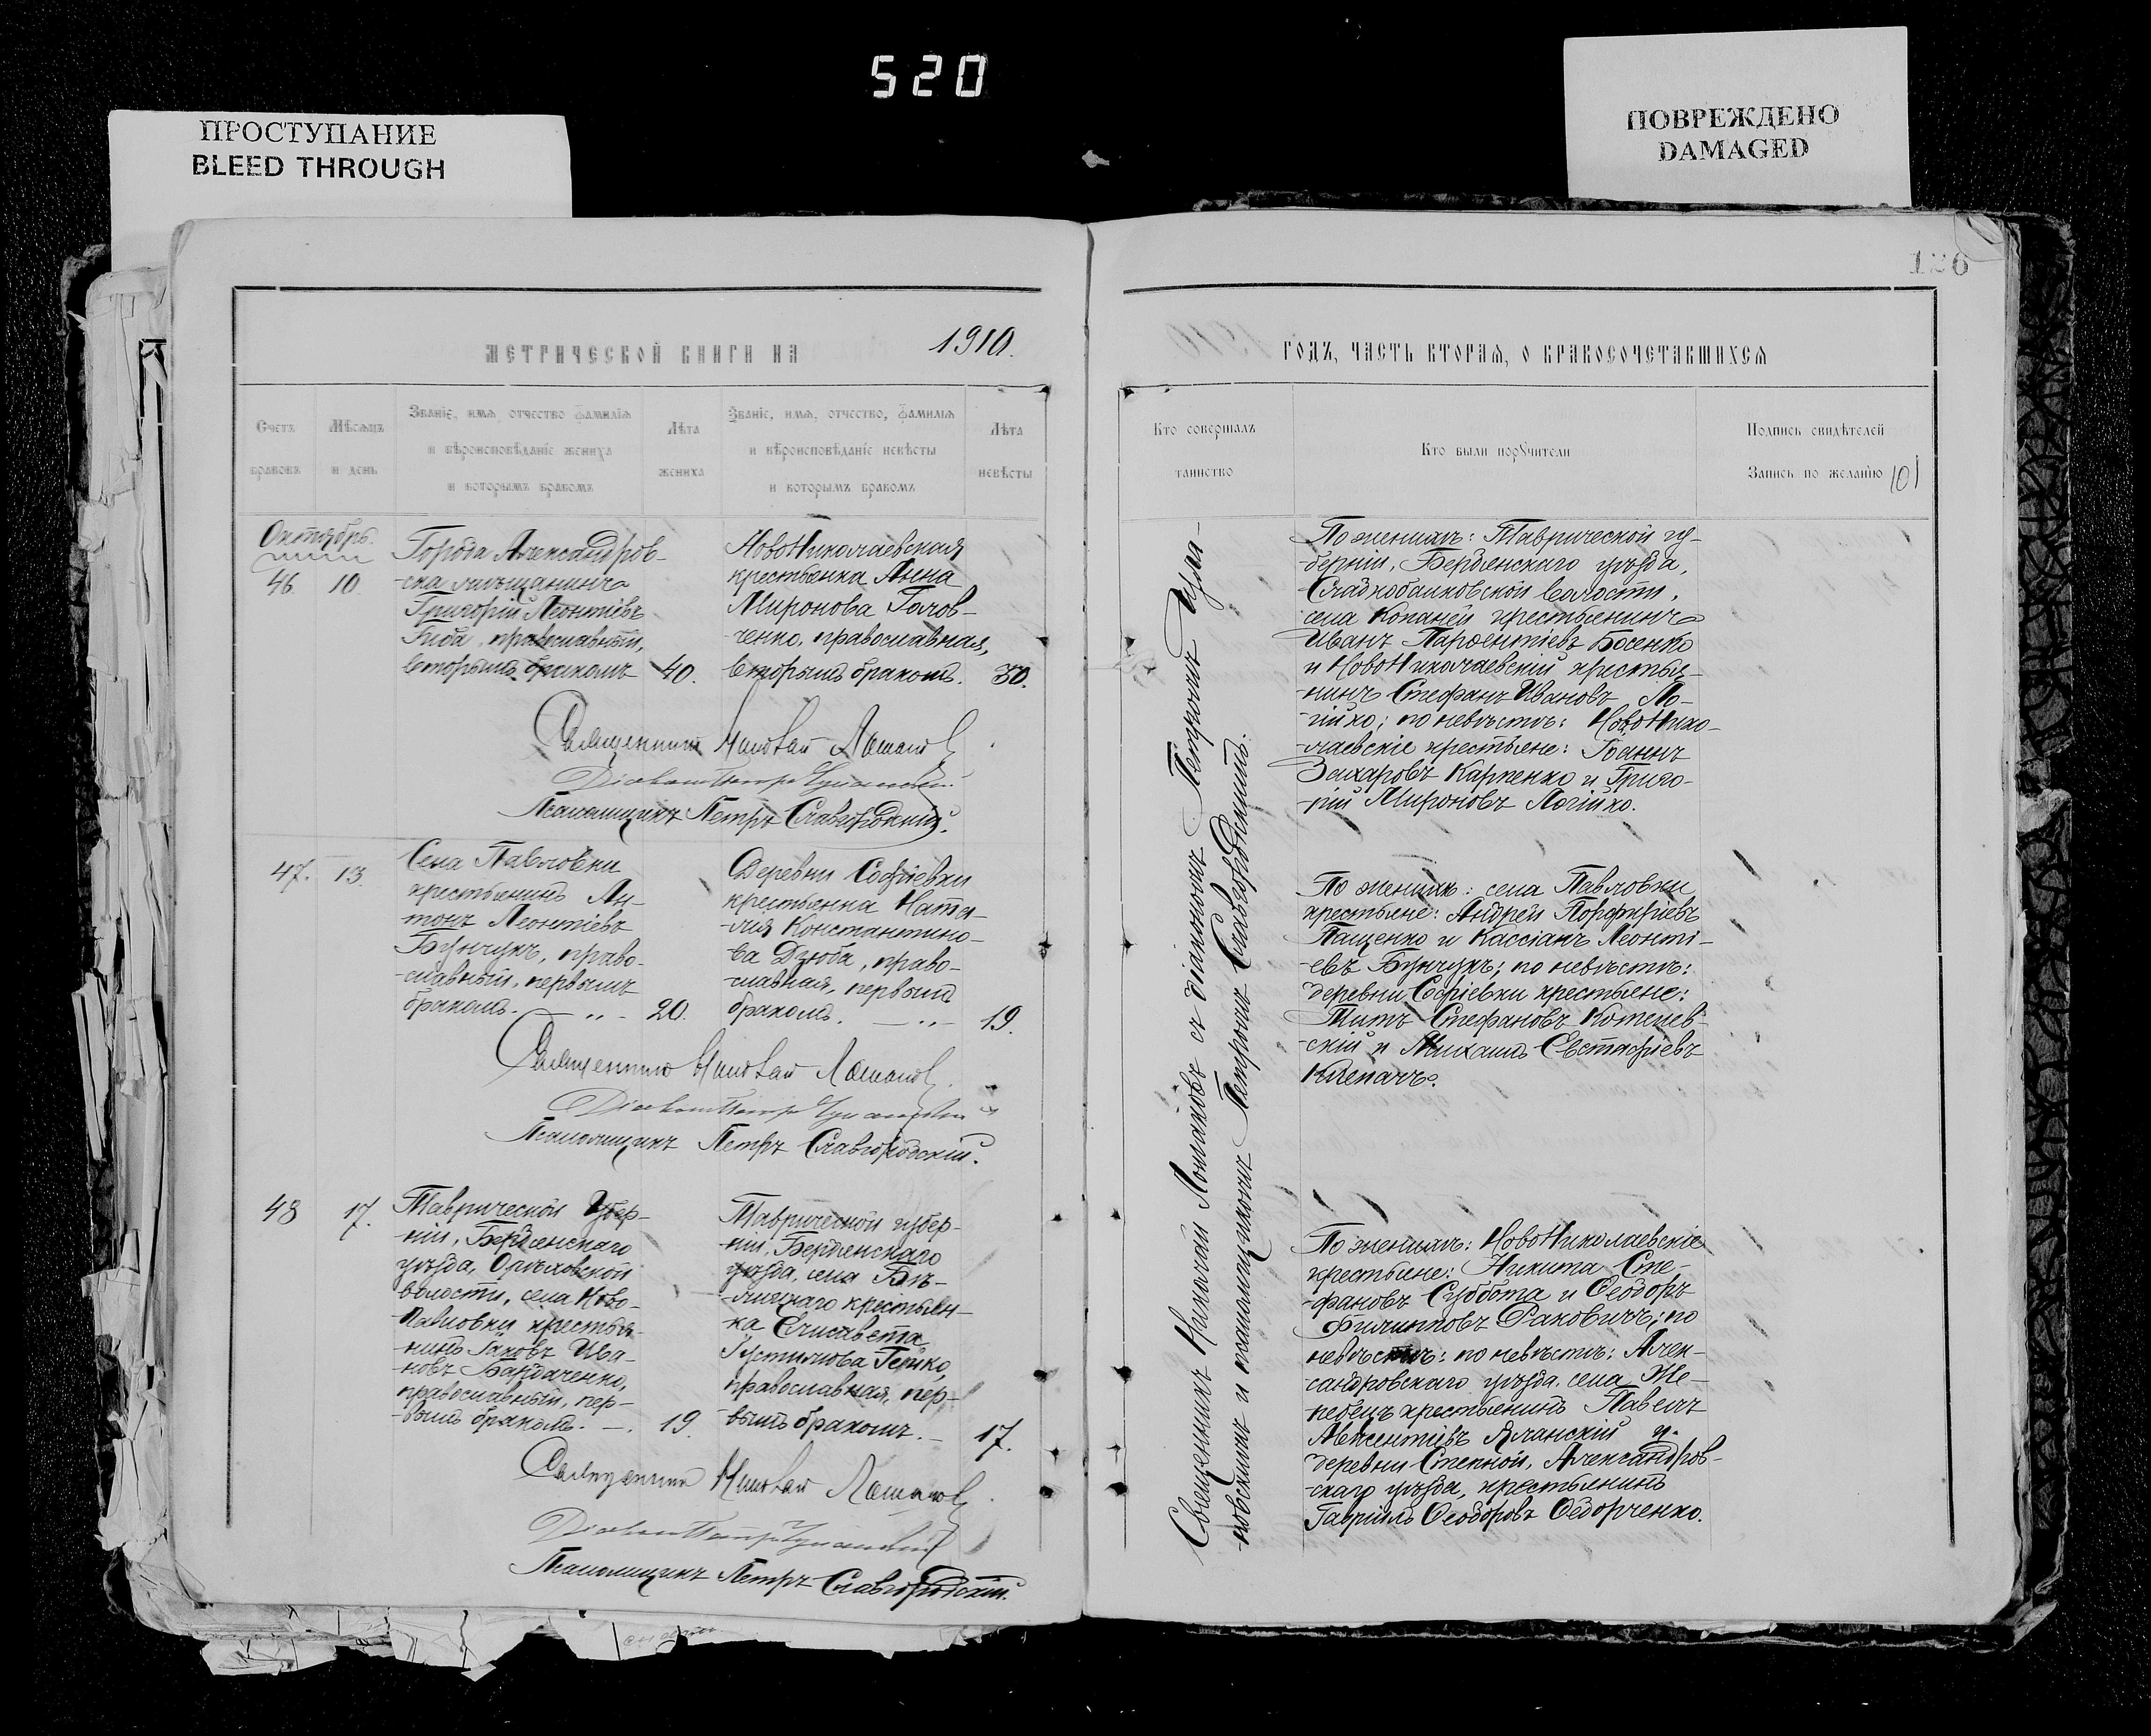 520
ПРОСТУПАНИЕ
BLEED THROUGH
ПОВРЕЖДЕНО
DAMAGED
126
МЕТРИЧЕСКОЙ КНИГИ НА 1910.
Счетъ
браковъ
Мѣсяцъ
и день
Званіе, имя отчество фамилія
и вѣроисповѣданіе жениха
и которымъ бракомъ
Лѣта
жениха
Званіе, имя, отчество, фамилія
и вѣроисповѣданіе невѣсты
и которымъ бракомъ
Лѣта
невѣсты
Октябрь.
46. 10.
Города Александров-
-ска мѣщанинъ
Григорій Леонтіевъ
православный,
вторымъ бракомъ 40.
НовоНиколаевская
крестьянка Анна
Миронова Голов-
-ченко, православная,
вторымъ бракомъ. 30.
Священник Николай Лошаков
Діаконъ Петръ
Псаломщикъ Петръ Славгородскій.
47. 13.
Села Павловки
крестьянинъ Ан-
тонъ Леонтіевъ
Бунчукъ, право-
-славный, первымъ
бракомъ. — „ - 20.
Деревни Софіевки
крестьянка Ната-
-лія Константино-
-ва Дзюба, право-
-славная, первымъ
бракомъ. — „ — 19.
Священник Николай Лошаков
Діаконъ Петръ
Псаломщикъ Петръ Славгородскій.
48 17.
Таврической Губер-
ніи, Бердянскаго
уѣзда, Орѣховской
волости, села Ново-
Павловки крестья-
нинъ Іаковъ Ива-
новъ Бардаченко,
православный, пер-
-вымъ бракомъ. —. 19.
Таврической губер-
ніи, Бердянскаго
уѣзда, села Бѣ-
-личнаго крестьян-
ка Елисавета
Іустинова Гейко,
православная, пер-
вымъ бракомъ. — 17.
Священник Николай Лошаков
Діаконъ Петръ
Псаломщикъ Петръ Славгородскій.
ГОДЪ, ЧАСТЬ ВТОРАЯ, О БРАКОСОЧЕТАВШИХСЯ
Кто совершалъ
таинство
Кто были поручители
Подпись свидѣтелей
Запись по желанію 101
Священникъ Николай Лошаковъ съ діакономъ Петромъ
-новскимъ и псаломщикомъ Петромъ Славгородскимъ.
По женихѣ: Таврической гу-
-берніи, Бердянскаго уѣзда,
Сладкобалковской волости,
села Копаней крестьянинъ
Иванъ Парфентіевъ Босенко
и НовоНиколаевскій крестья-
-нинъ Стефанъ Ивановъ Ло-
-гійко; по невѣстѣ: НовоНико-
-лаевскіе крестьяне: Іоаннъ
Захаровъ Карпенко и Григо-
-рій Мироновъ Логійко.
По женихѣ: села Павловки
крестьяне: Андрей Порфиріевъ
Пащенко и Кассіанъ Леонті-
-евъ Бунчукъ; по невѣстѣ:
деревни Софіевки крестьяне:
Титъ Стефановъ Котелев-
-скій и Михаилъ Евстафіевъ
Клепачъ.
По женихѣ: НовоНиколаевскіе
крестьяне: Никита Сте-
-фановъ Суббота и Ѳеодоръ
Филипповъ Раковичъ; по
невѣстѣ: по невѣстѣ: Алек-
сандровскаго уѣзда, села Же-
ребецъ крестьянинъ Павелъ
Авксентіевъ Ячанскій и
деревни Степной, Александров-
-скаго уѣзда, крестьянинъ
Гавріилъ Ѳеодоровъ Ѳедорченко.